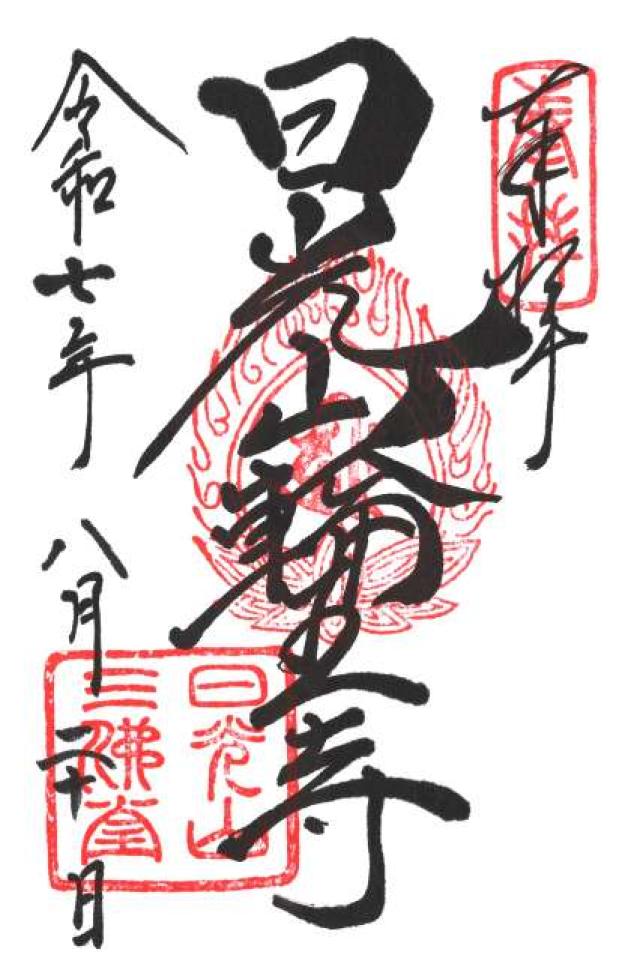 奉拝
奉拝
日光山輪王寺
日光山
三佛堂
令和七年 八月二十日